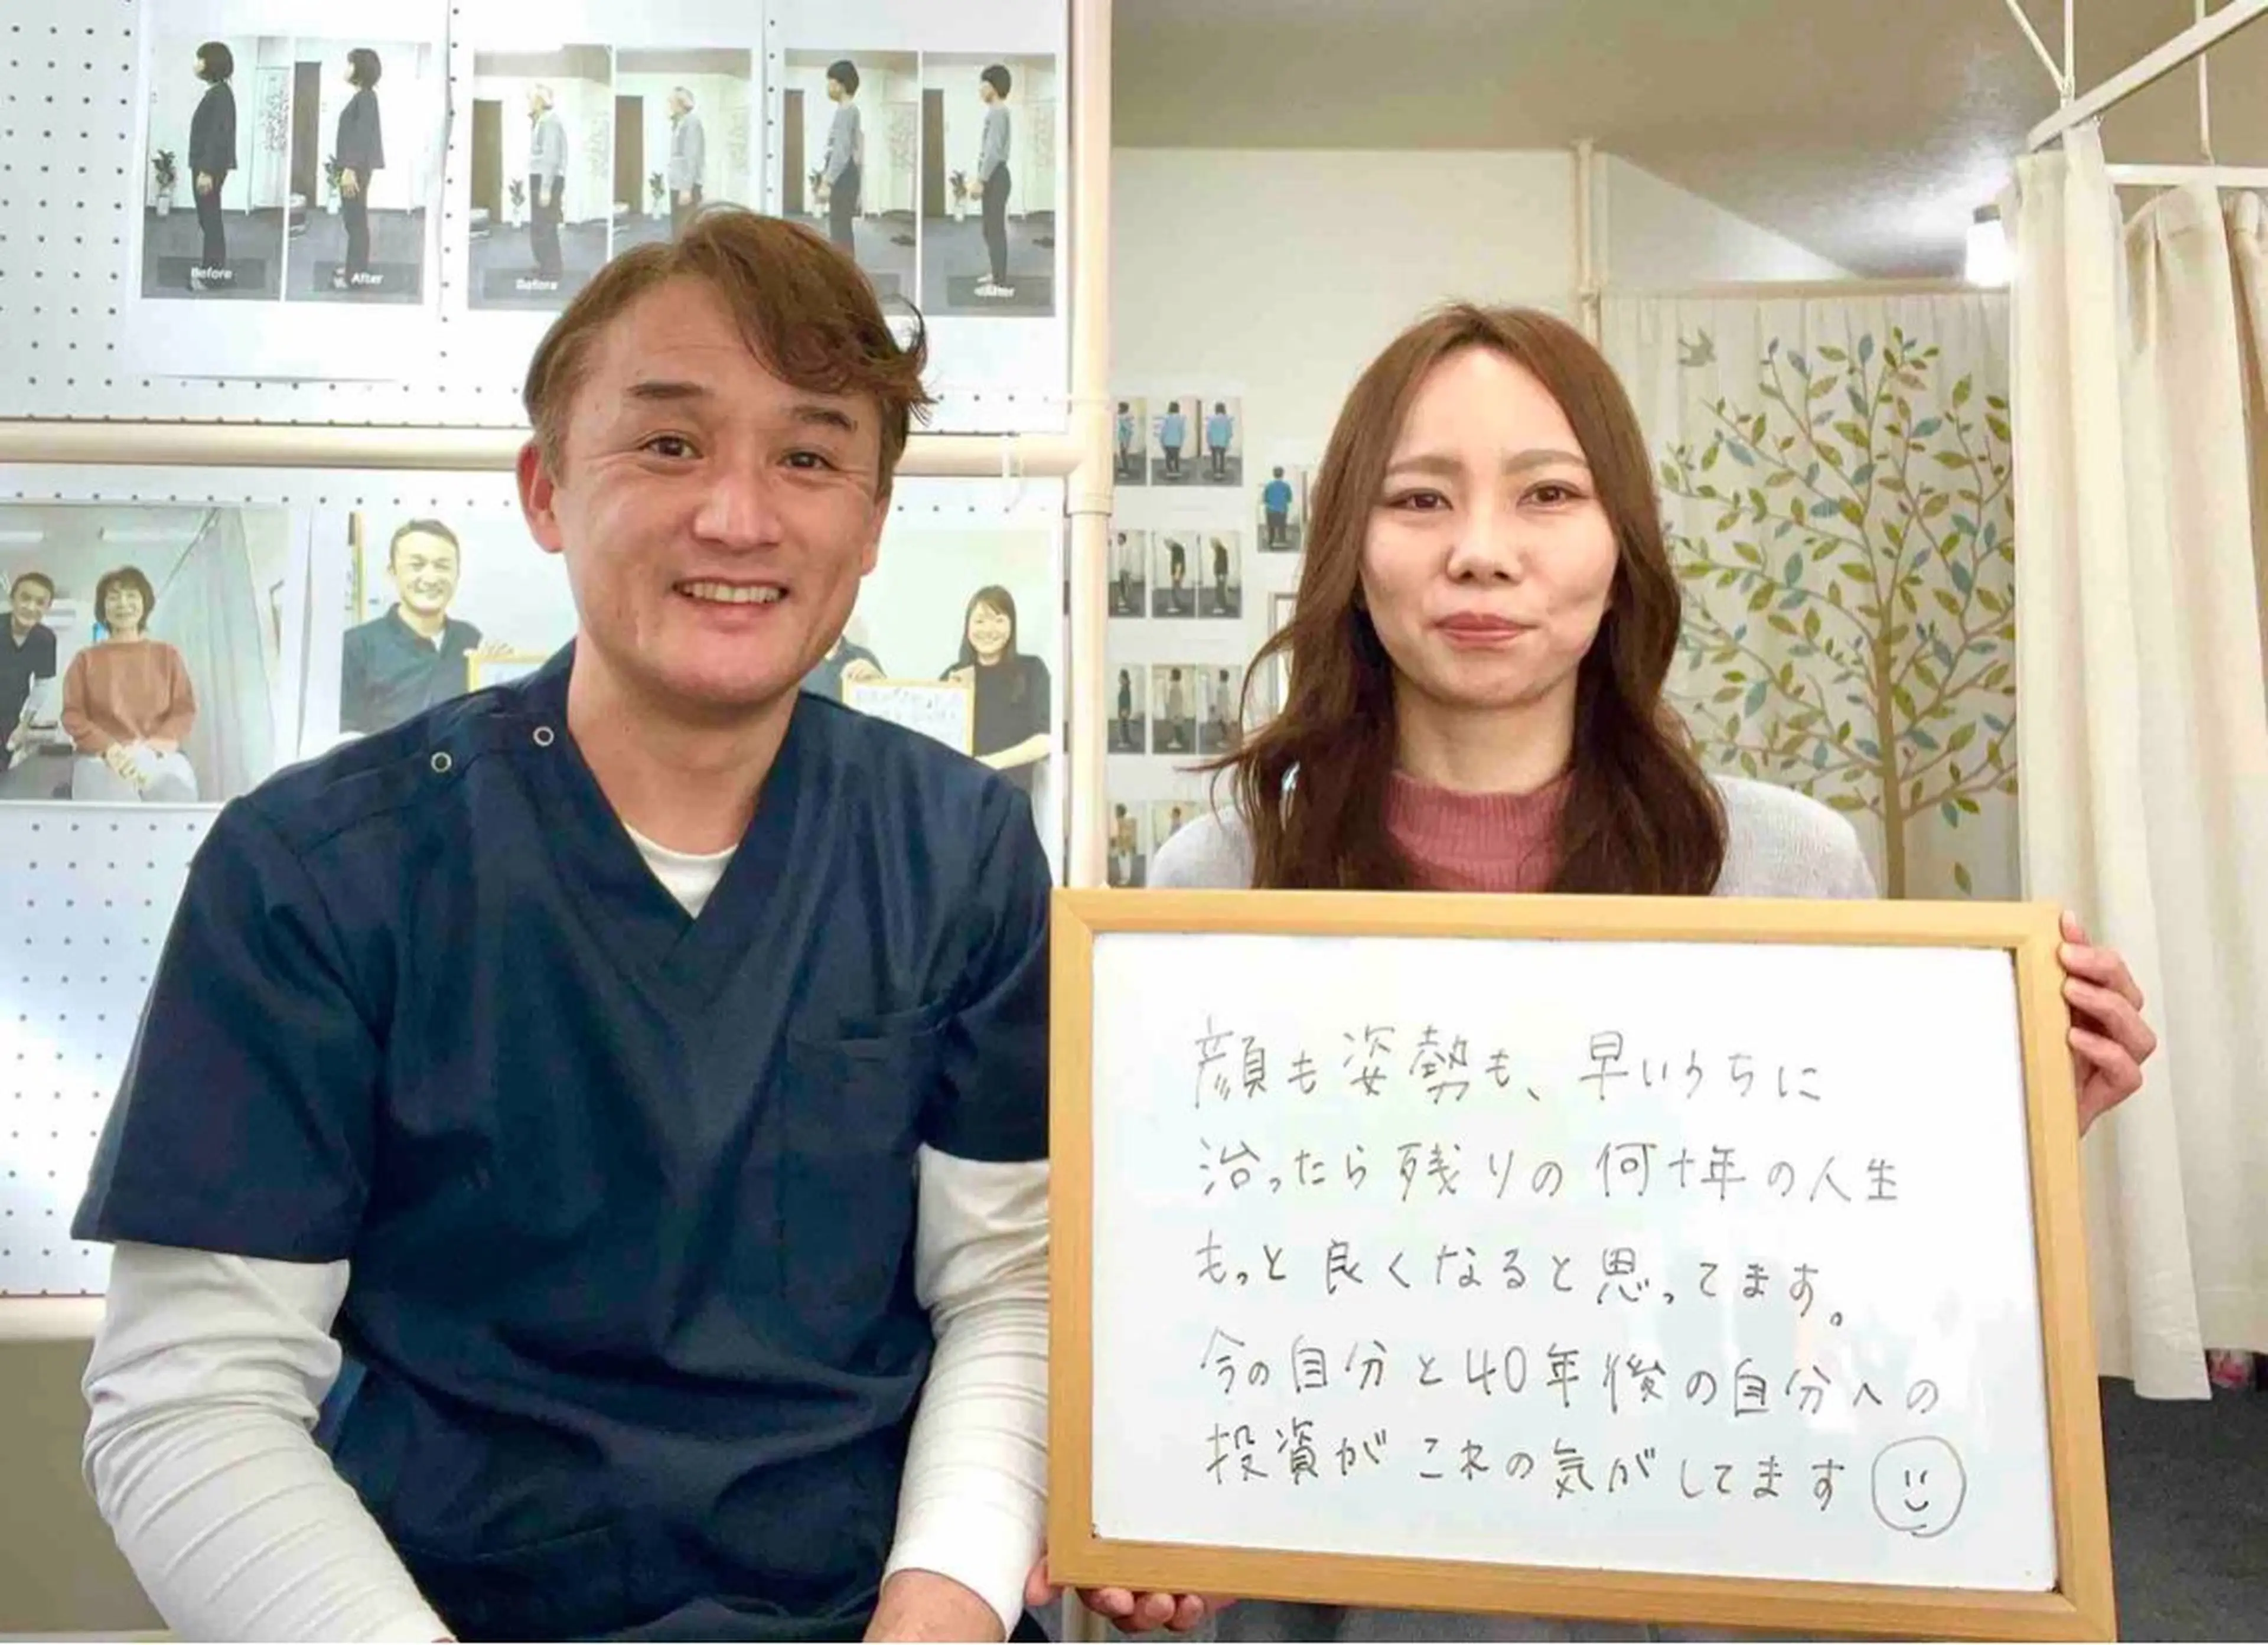 Before
After
Before
After
顔も姿勢も、早いうちに
治ったら残りの何十年の人生
もっと良くなると思ってます。
今の自分と40年後の自分への
投資がこれの気がしてます